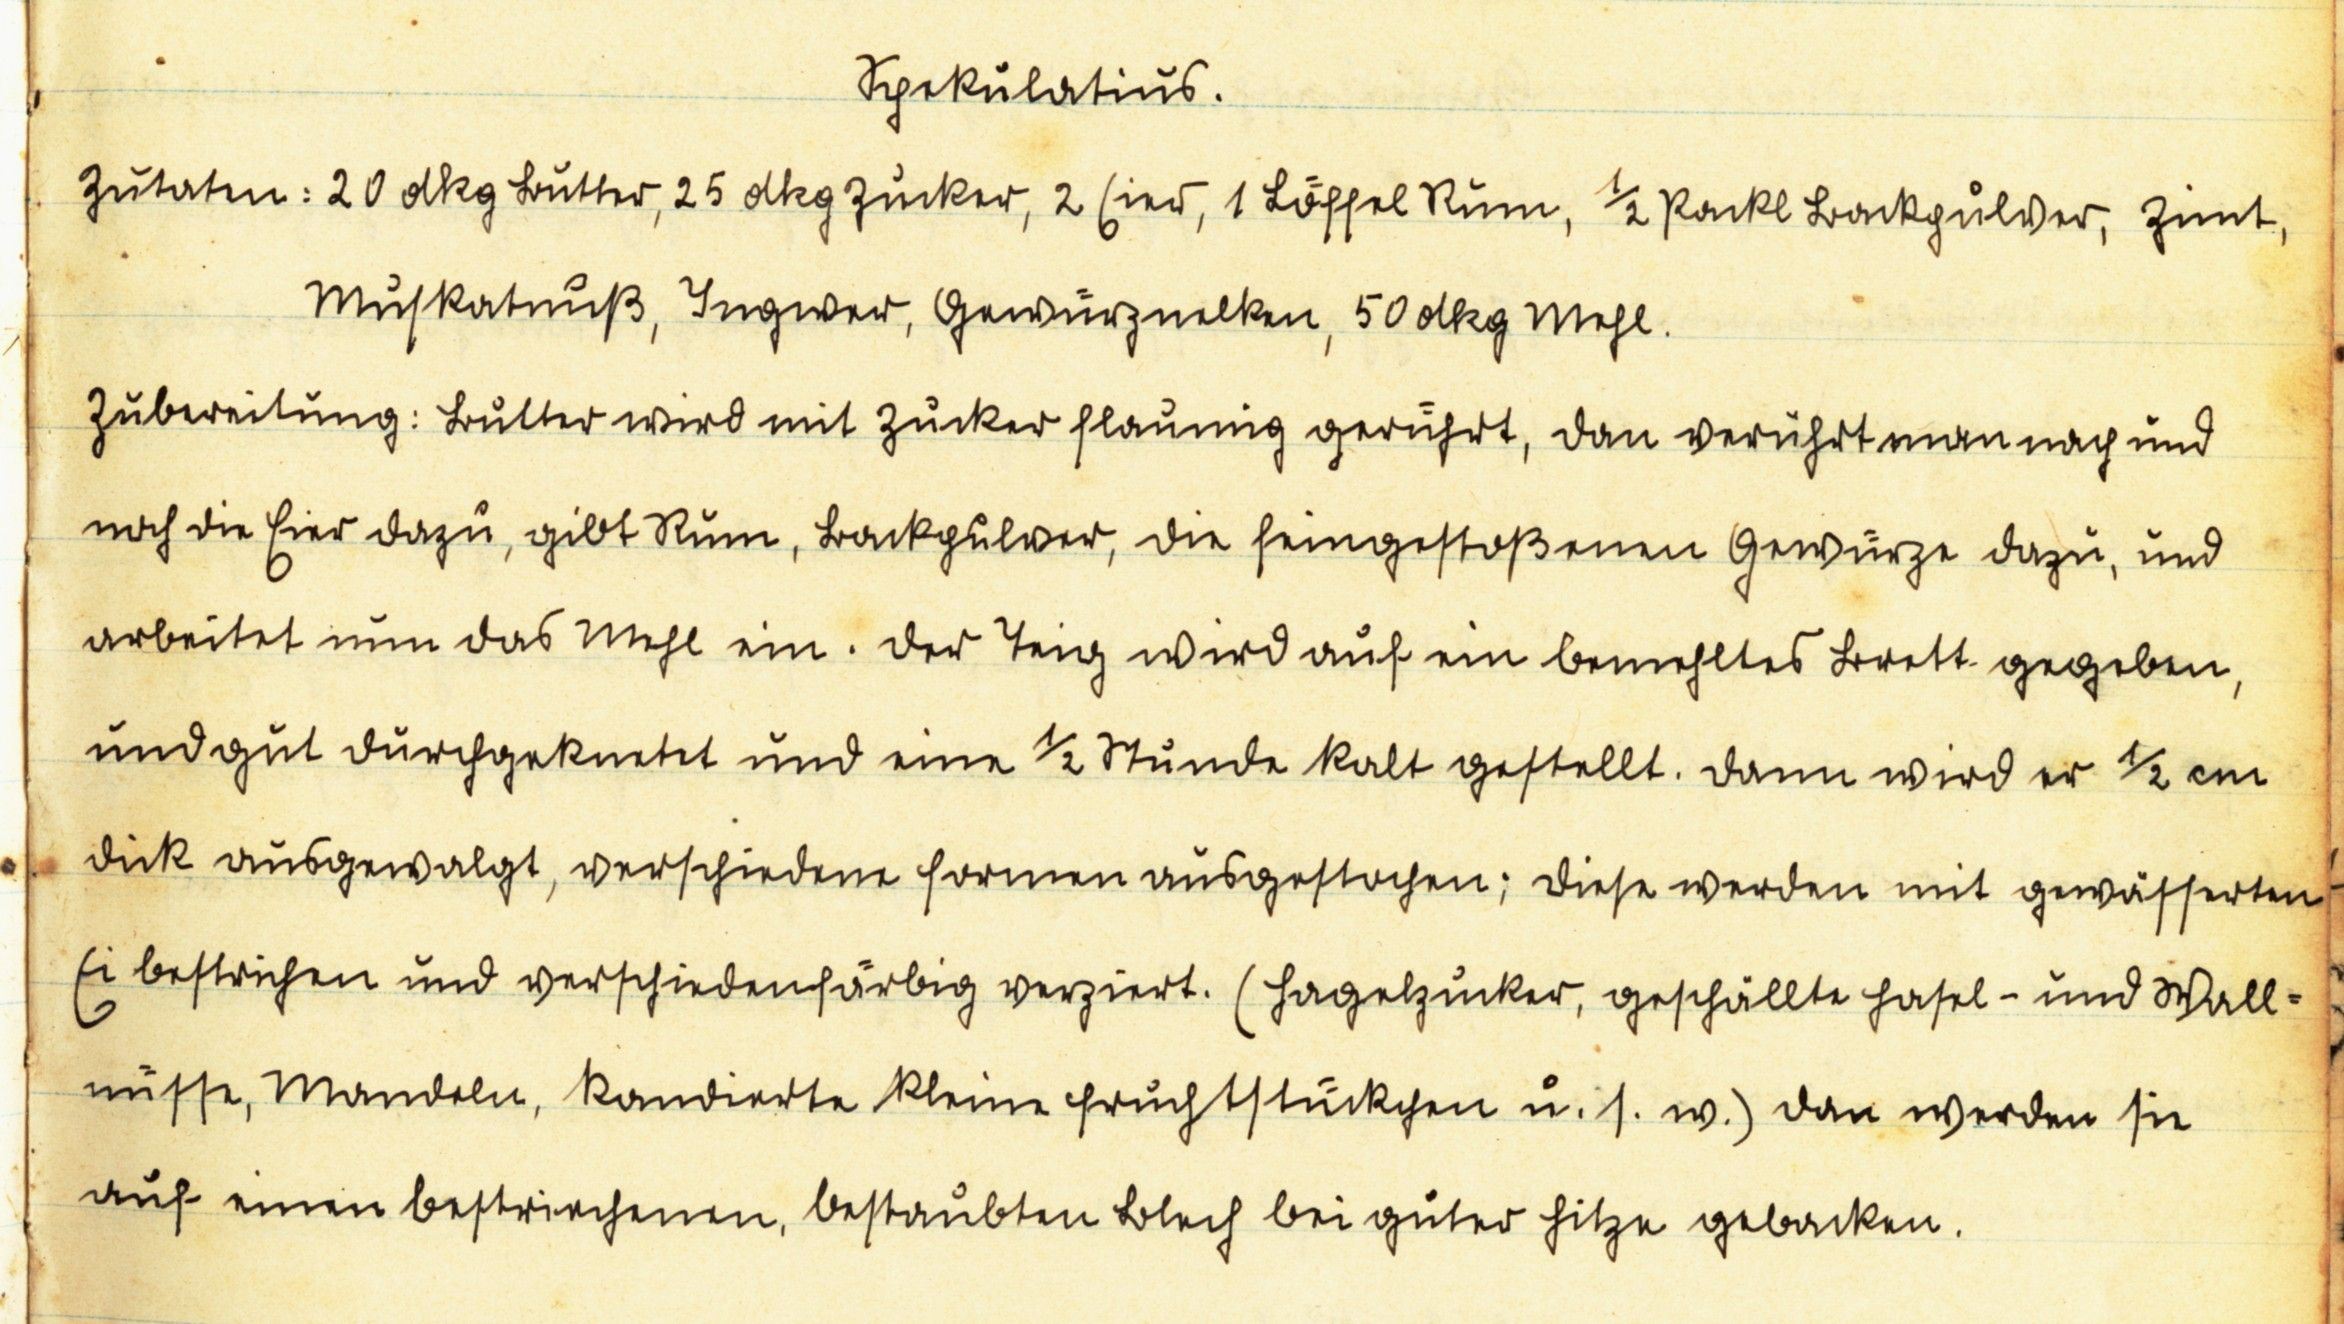 Spekulatius.
Zutaten: 20 dkg Butter, 25 dkg Zucker, 2 Eier, 1 Löffel Rum, ½ Packl Backpulver, Zimt,
Muskatnuß, Ingwer, Gewürznelken, 50 dkg Mehl.
Zubereitung: Butter wird mit Zucker flaumig gerührt, dan verührt man nach und
nach die Eier dazu, gibt Rum, Backpulver, die feingestoßenen Gewürze dazu, und
arbeitet nun das Mehl ein. Der Teig wird auf ein bemehltes Brett gegeben,
und gut durchgeknetet und eine ½ Stunde kalt gestellt. Dann wird er ½ cm
dick ausgewalgt, verschiedene Formen ausgestochen; diese werden mit gewässerten
Ei bestrichen und verschiedenfärbig verziert. (Hagelzucker, geschällte Hasel- und Wall=
nüsse, Mandeln, kandierte kleine Fruchtstückchen u. s. w.) dan werden sie
auf einen bestriechenen, bestaubten Blech bei guter Hitze gebacken.